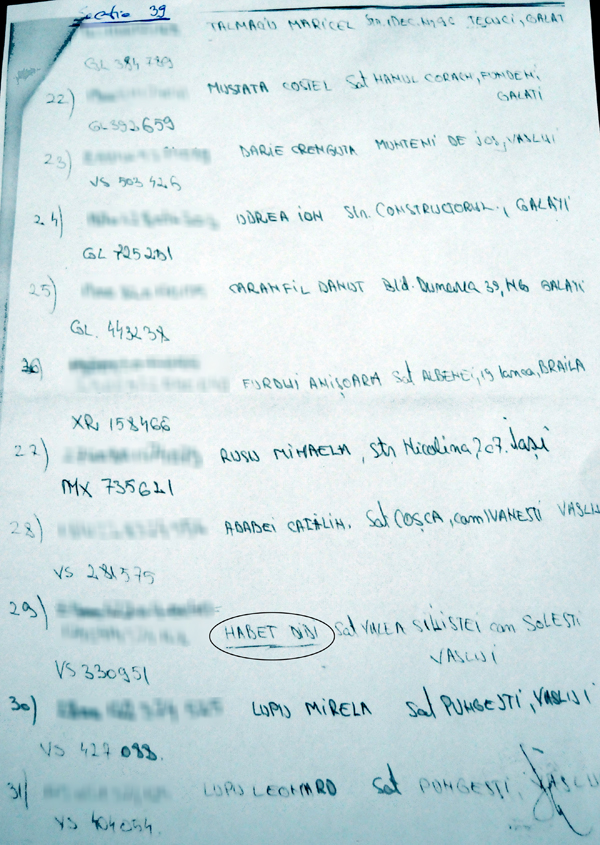 Secția 39
TALMACIU MARICEL Str. 1 Dec. Nr 9C TECUCI, GALATI
GL 384 789
22) MUSTATA COSTEL Sat HANUL CONACHI, FUNDENI
GALATI
GL 392659
23) DARIE CRENGUTA MUNTENI DE JOS, VASLUI
VS 503 426
24) UDREA ION Str. CONSTRUCTORUL, GALATI
GL 725201
25) CARANFIL DANUT Bld. Dunarea 39, GALATI
GL. 443238
26)
FURDUI ANIȘOARA Sat ALBENEI, 19 Ianca, BRAILA
XR 158466
27) RUSU MIHAELA, Str Nicolina 7 C7. Iași
MX 735621
28) ADABEI CATĂLIN. Sat COȘCA, com IVANESTI VASLUI
VS 281575
29)
HABET DIDI Sat VALEA SILISTEI com SOLESTI
VASLUI
VS 330951
30) LUPU MIRELA Sat PUNGESTI, VASLUI
VS 427 088.
31) LUPU LEONARD Sat PUNGESTI, VASLUI
VS 404054.